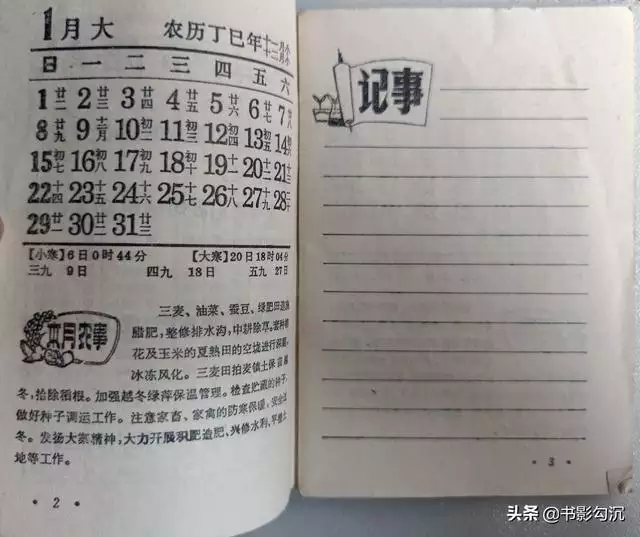 1月大 农历丁巳年十一 十二月大 小
日 一 二 三 四 五 六
1廿二 2廿三 3廿四 4廿五 5廿六 6廿七 7廿八
8廿九 9十二月 10初二 11初三 12初四 13初五 14初六
15初七 16初八 17初九 18初十 19十一 20十二 21十三
22十四 23十五 24十六 25十七 26十八 27十九 28二十
29廿一 30廿二 31廿三
【小寒】6日0时44分 【大寒】20日18时04分
三九 9日 四九 18日 五九 27日
本月农事
三麦、油菜、蚕豆、绿肥田追施
腊肥,整修排水沟,中耕除草。套种棉
花及玉米的夏熟田的空垅进行深翻,
冰冻风化。三麦田拍麦镇土保苗越
冬,拾除稻根。加强越冬绿萍保温管理。检查贮藏的种子,
做好种子调运工作。注意家畜、家禽的防寒保暖,安全过
冬。发扬大寨精神,大力开展积肥造肥、兴修水利、平整土
地等工作。
· 2 ·
记事
· 3 ·
头条 @书影勾沉